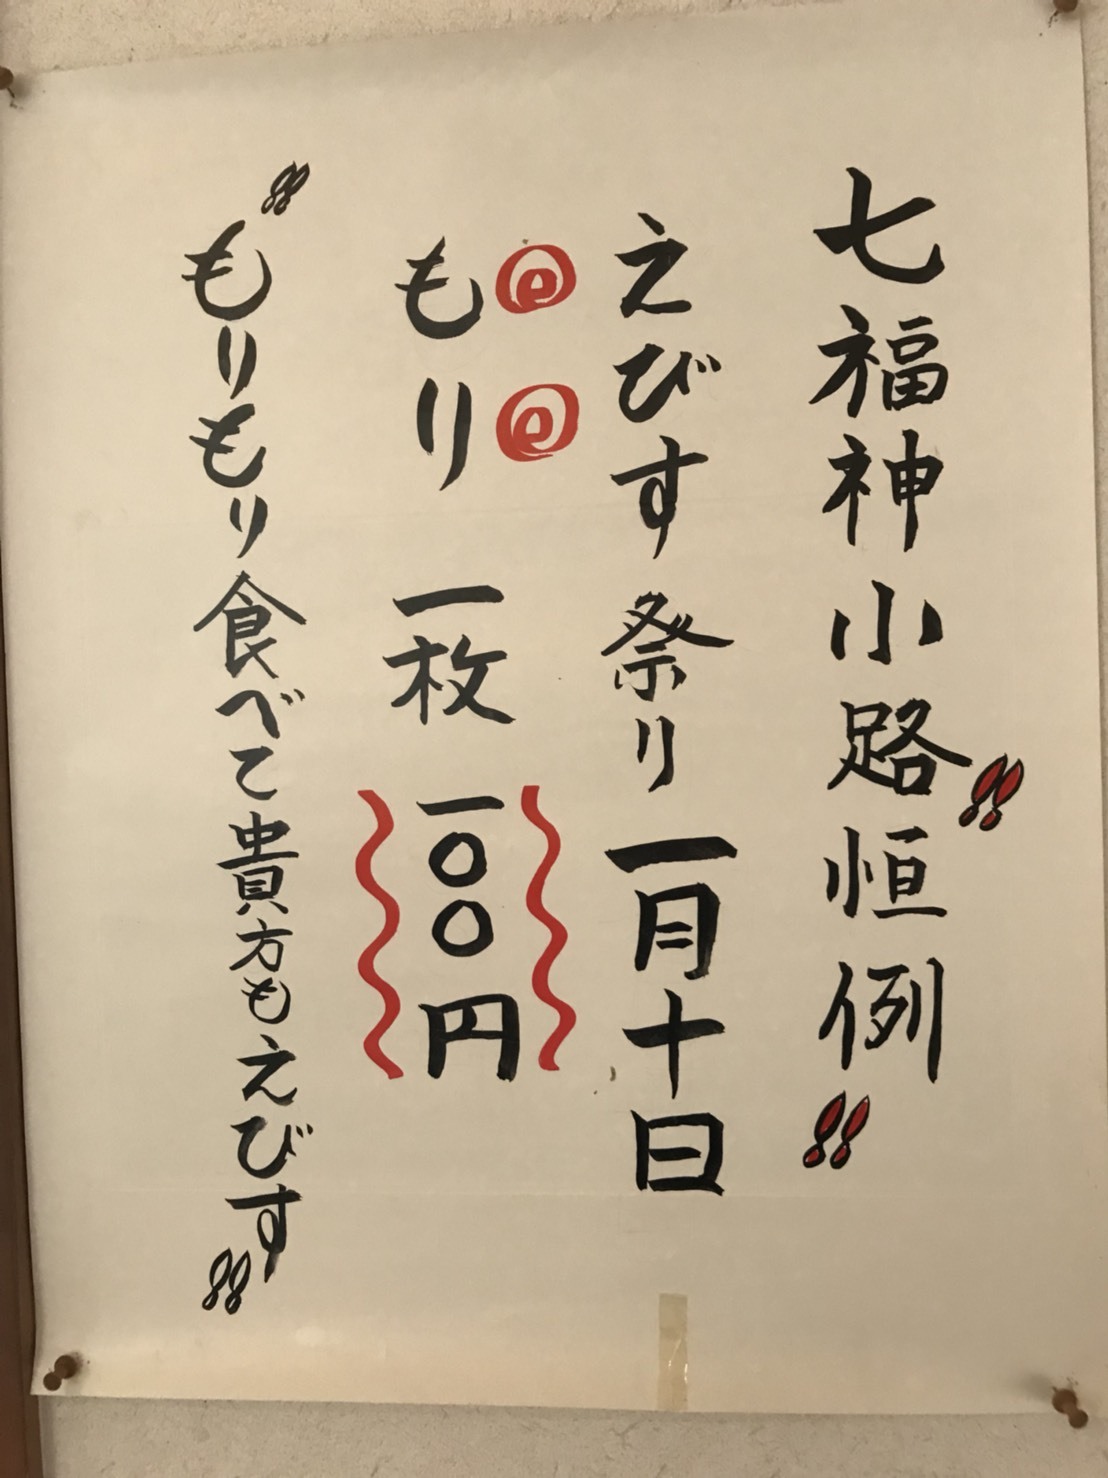 七福神小路〝恒例〟
えびす祭り一月十日
もり一枚一〇〇円
〝もりもり食べて貴方もえびす〟